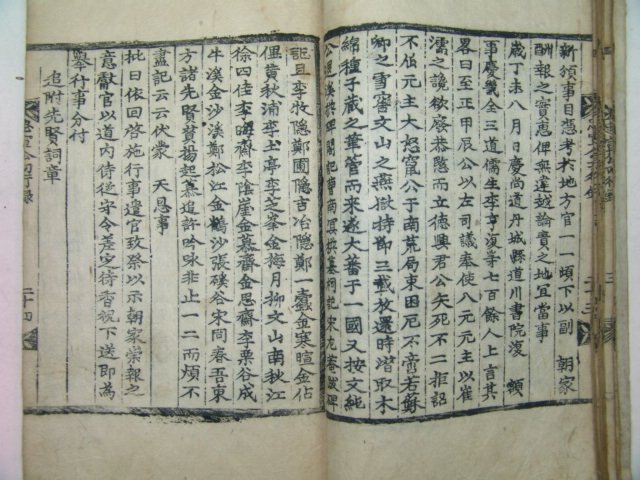 新領事目愚考本地方官一一頒下以副 朝家
酬報之實惠俾無違越論責之地宜當事
歲丁未八月日慶尙道丹城縣道川書院復 額
事慶幾全三道儒生李亨復等七百餘人上言其
畧曰至正甲辰公以左司議奉使八元元主以崔
濡之讒欲廢恭愍而立德興君公矢死不二拒詔
不伯元主大怒竄公于南荒局束困厄不啻若蘇
卿之雪窖文山之燕獄持節三載放還時潛取木
綿種子藏之筆管而來遂大蕃于一國又按文純
公退溪撰碑閣記曺南冥撰墓祠記宋尤菴跋碑
記且李牧隱鄭圃隱吉冶隱鄭一蠹金寒暄金佔
俾黃秋浦李土亭李芝峯金梅月柳文山南秋江
徐四佳李晦齋李陰崖金慕齋金思齋李栗谷成
牛溪金沙溪鄭松江金鶴沙張磎谷宋同春吾東
方諸先賢贊揚起慕追許吟咏非止一二而煩不
盡記云云伏蒙 天恩事
批曰依回啓施行事遣官致祭以示朝家崇報之
意獻官以道內侍從守令差定待香祝下送即爲
擧行事分付
追附先賢詞章
二十四